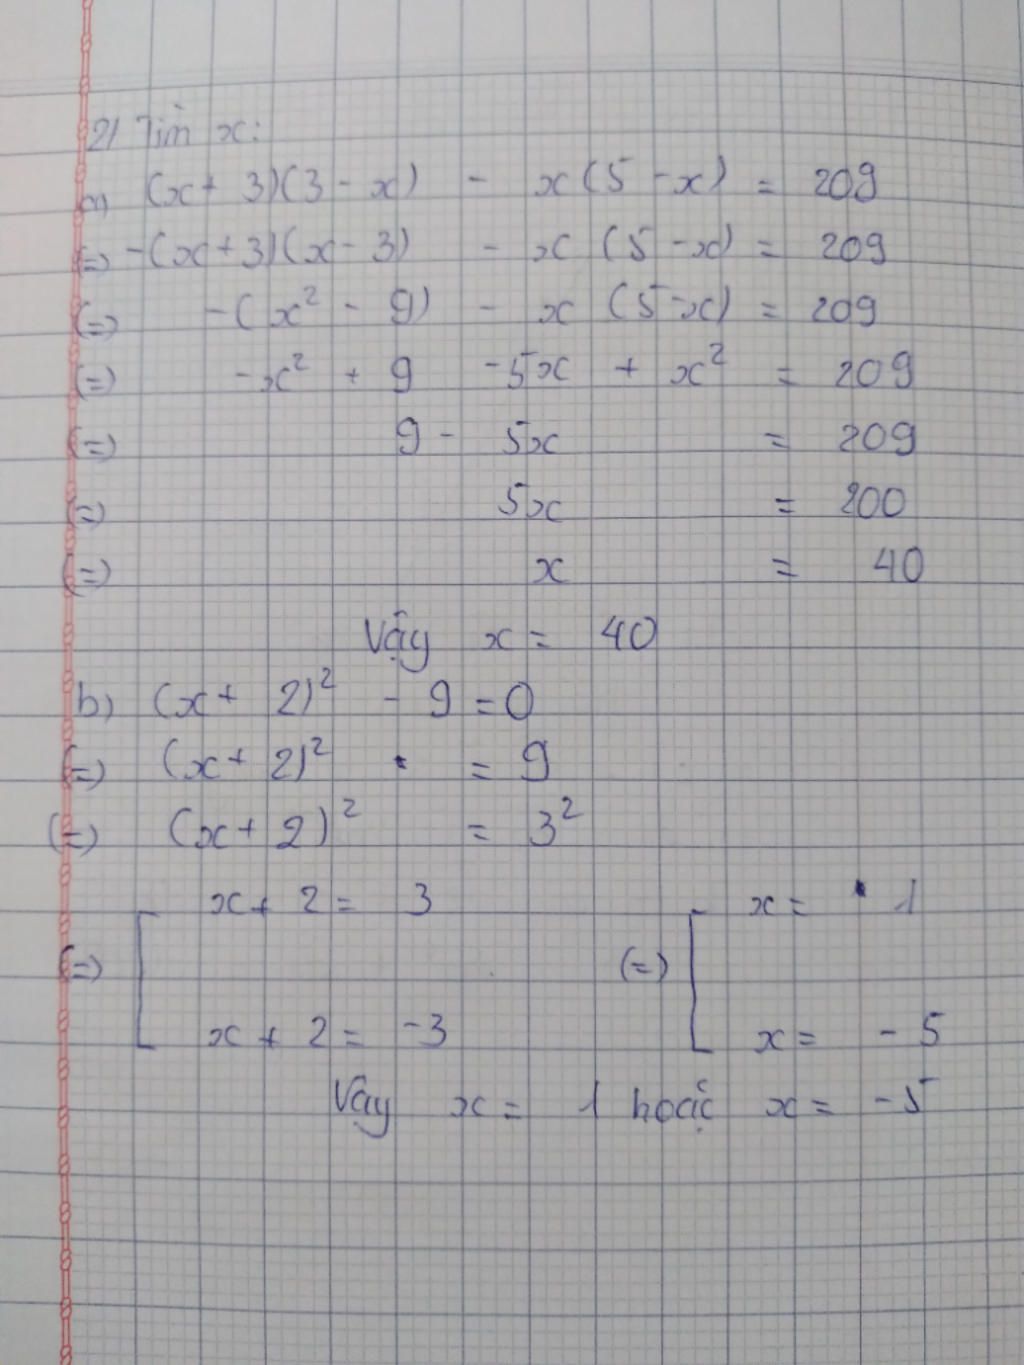 2) Tìm x:
a) (x + 3)(3 - x) - x(5 - x) = 209
(=) -(x + 3)(x - 3) - x (5 - x) = 209
(=) -(x² - 9) - x (5 - x) = 209
(=) -x² + 9 -5x + x² = 209
(=) 9 - 5x = 209
(=) 5x = 200
(=) x = 40
Vậy x = 40
b) (x + 2)² - 9 = 0
(=) (x + 2)² = 9
(=) (x + 2)² = 3²
x + 2 = 3 x = 1
(=) [ (=) [
x + 2 = -3 x = -5
Vậy x = 1 hoặc x = -5